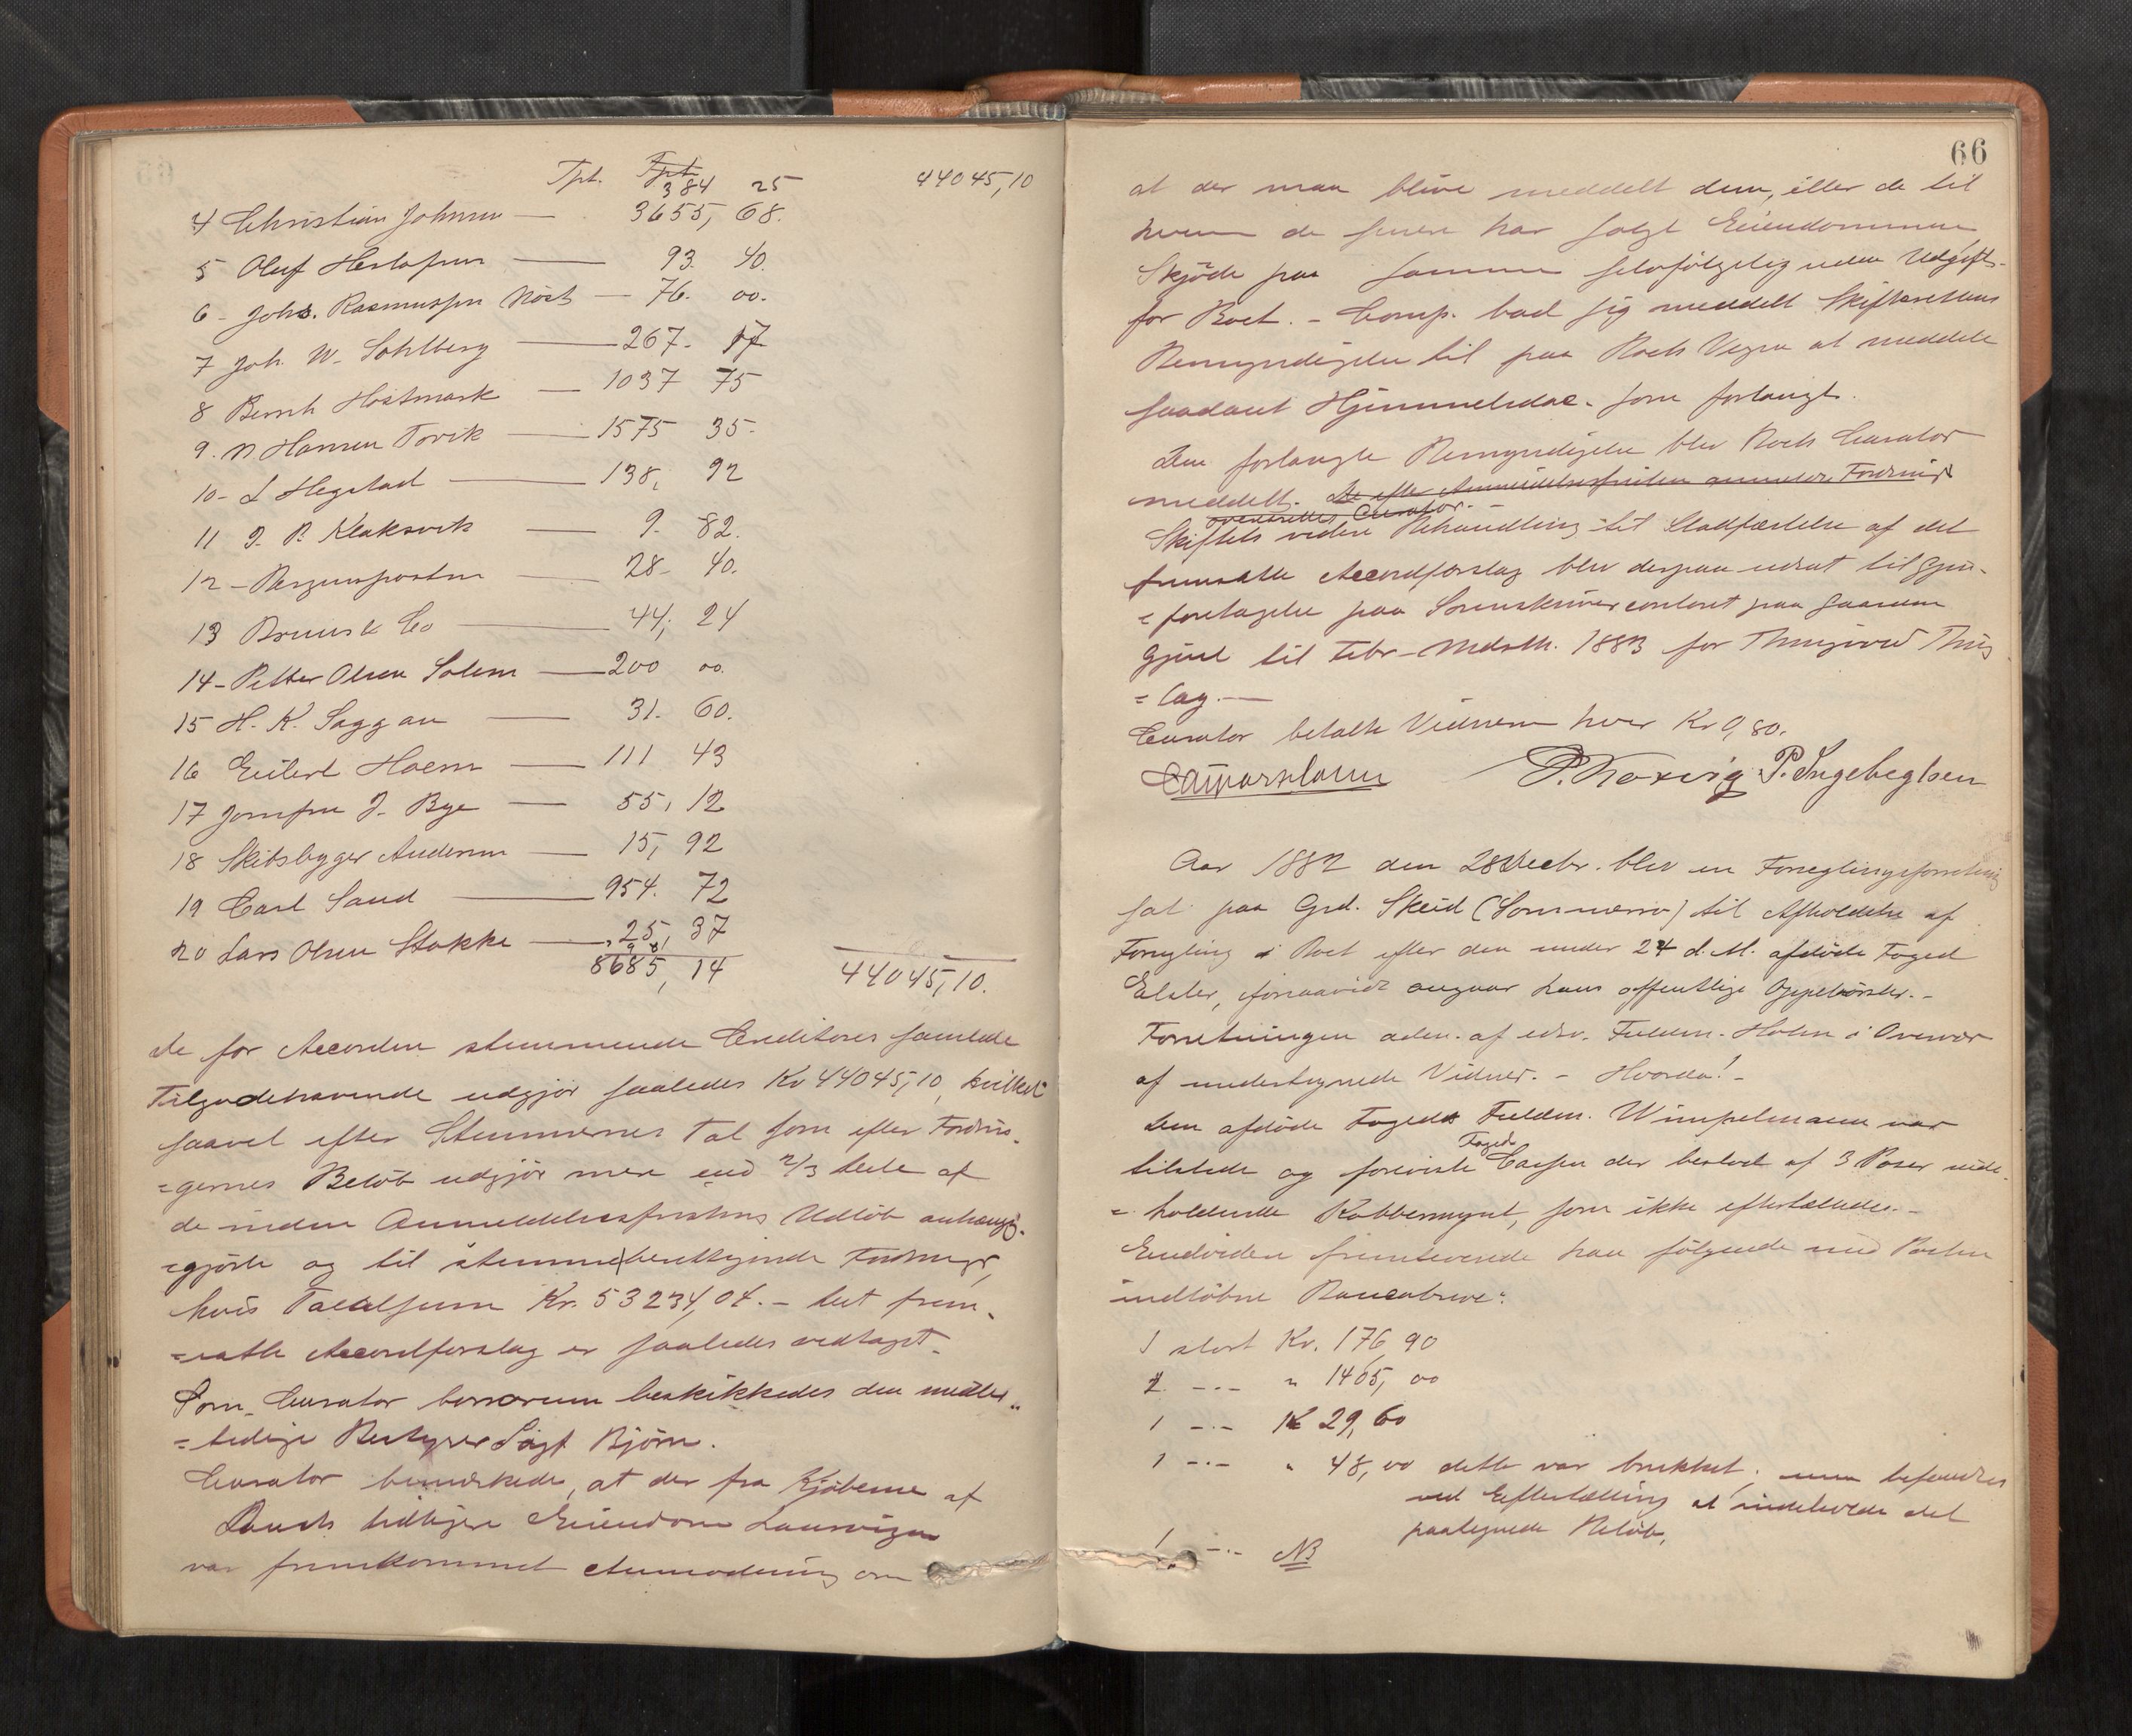 Tpt. 384 25 44045,10
4 Christian Johnsen — 3655, 68.
5 Oluf Herlofsen — 93. 40.
6 - Johs. Rasmussen Nöst — 76. 00.
7 Joh. W. Sohlberg — 267. 17
8 Bernh Hostmark — 1037 75
9. N Hansen Torvik — 1575 35.
10 - L Hegstad — 138, 92
11 J. P. Klaksvik — 9. 82.
12 - Bergensposten — 28. 40.
13 Bruus & Co — 44, 24
14 - Petter Olsen Solem — 200 00.
15 H. K. Saggau — 31. 60.
16 Eilert Hoem — 111 43
17 Jomfru J. Bye — 55, 12
18 Skibsbygger Andersen — 15, 92
19 Carl Sand — 954. 72
20 Lars Olsen Stokke — 25, 37
8685, 14 44045,10.
De for Accorden stemmende Creditores samlede
Tilgodehavende udgjör saaledes Kr 44045,10, hvilket
saavel efter Stemmernes Tal som efter Fordrin-
=gernes Belöb udgjör mere end 2/3 dele af
de inden Anmeldelsesfristens Udlöb anhængig-
=gjorte og til stemmeberettigende Fordringer,
hvis Totalsum Kr. 53234,04. - Det frem-
=satte Accordforslag er saaledes vedtaget.
Som Curator bonorum beskikkedes den midler-
=tidige Bestyrer Sagf Björn.
Curator bemærkede, at der fra Kjöberne af
Boets tidligere Eiendom
var fremkommet Anmodning om
66
at der maa blive meddelt dem, eller de til
hvem de senere har solgt Eiendommen
Skjöde paa samme selvfölgelig uden Udgift
for Boet. - Comp. bad sig meddelt Skifterettens
Bemyndigelse til paa Boets Vegne at meddele
saadant Hjemmelsdoc. som forlangt.
Den forlangte Bemyndigelse blev Boets Curator
meddelt. De efter Anmeldelsesfristen anmeldte Fordringer
Curator. -
Skiftets videre Behandling til Stadfæstelse af det
fremsatte Accordforslag blev derpaa udsat til Gjen-
=foretagelse paa Sorenskrivercontoret paa Gaarden
Gjeil til Febr. Mdsth. 1883 for Thingvold Thing
=lag. —
Curator betalte Vidnerne hver Kr 0,80.
P. Ingebrigtsen
Aar 1882 den 28 Decbr. blev en Forseglingsforretning
sat paa Grd. Skeid (Sommerro) til Afholdelse af
Forsegling i Boet efter den under 24 d. M. afdöde Foged
Elster, forsaavidt angaar hans offentlige Oppebörsler. -
Forretningen adm. af edsv. Fuldm. Holm i Overvær
af undertegnede Vidner. - Hvorda! -
Den afdöde Fogeds Fuldm. Wimpelmann var
tilstede og foreviste Fogeds Cassen der bestod af 3 Poser inde-
=holdende Kobbermynt, som ikke eftertaltes. -
Endvidere fremleverede han fölgende med Posten
indlöbne Pengebreve:
1 stort Kr. 176,90
2 -.- " 1465,00
1 -.- K 29,60
1 -.- " 48,00 dette var brukket, men befandtes
ved Eftertælling at indeholde det
paategnede Belöb.
1 -.- NB